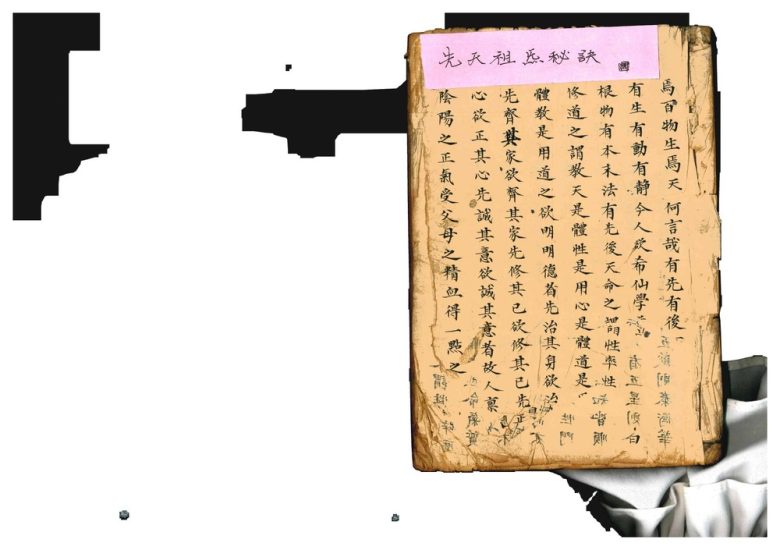 先天祖炁秘訣
焉百物生焉天何言哉有先有後
有生有動有静今人欲希仙學
根物有本末法有先後天命之謂性率性
修道之謂教天是體性是用心是體道是
體教是用道之欲明明德者先治其身欲治
先齊其家欲齊其家先修其己欲修其己先正
心欲正其心先誠其意欲誠其意者故人禀
陰陽之正氣受父母之精血得一點之